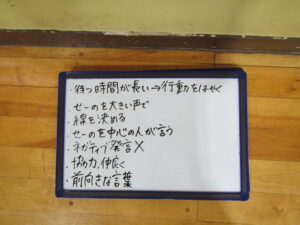 ・待つ時間が長い→行動をはやく
・せーのを大きい声で
・線を決める
・せーのを中心の人が言う
・ネガティブ発言×
・協力、仲良く
・前向きな言葉